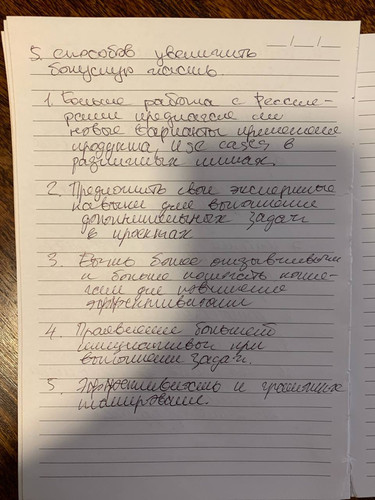 5 способов увеличить
бонусную часть.
1. Больше работа с Ресселе-
рами предлагая им
новые варианты применения
продукта, use cases в
различных нишах.
2. Предложить свои экспертные
навыки для выполнения
дополнительных задач
в проектах
3. Быть более отзывчивым
и больше помогать колле-
гам для повышения
эффективности
4. Проявление большей
инициативы при
выполнении задач.
5. Эффективность и грамотное
планирование.